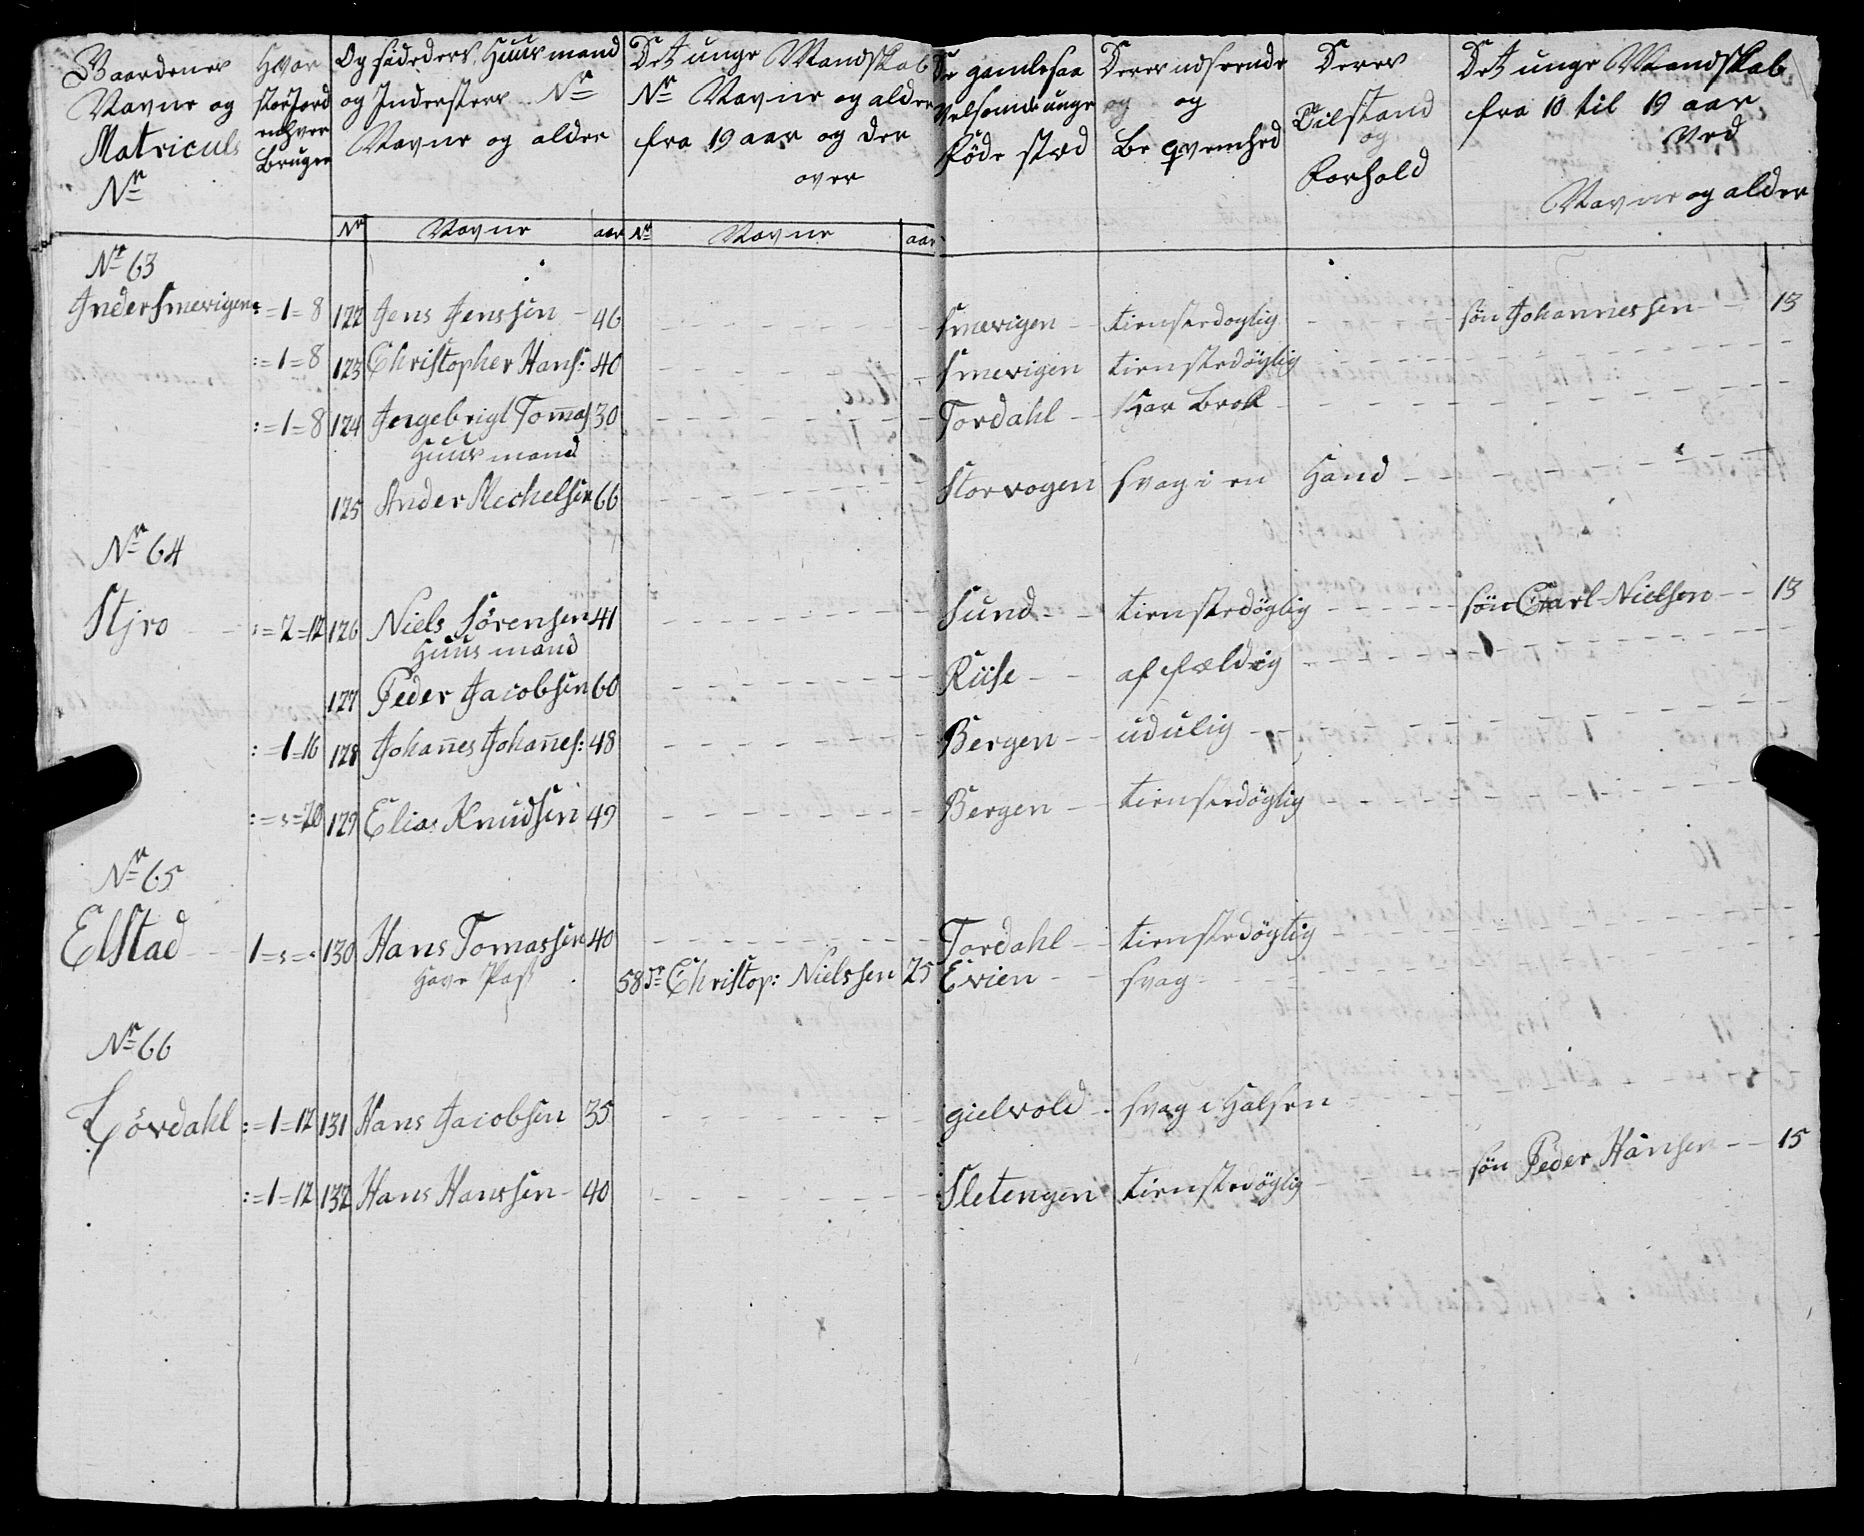 Gaardenes
Navne og
Matriculs
Nr
Hvor
stor Jord
enhver
Bruger
Opsideders, Huusmænd
og Indersters Nr
Navne og alder
Det unge Mandskab
Nr Navne og alder
fra 19 aar og der
over
De gamle saa
velsom de unge
föde sted
Deres udseende
og og
Be qvemhed
Deres
Tilstand
og
Forhold
Det unge Mandskab
fra 10 til 19 aar
ved
Navne og alder
Nr Navne aar Nr Navne aar
Nr 63
Inder Smevigen :=1=8 122 Jens Jenssen 46 Smevigen tienstedoglig søn Johannessen 13
:=1=8 123 Christopher Hans: 40 Smevigen tienstedöglig
:=1=8 124 Ingebrigt Tomas 30 Tordahl Har Brok
Huusmand
125 Ander Mechelsen 66 Storvogen svag i en Hand
Nr 64
Stjro :=2=12 126 Niels Sörensen 41 Sund tienstedöglig sön Carl Nielsen 13
Huusmand
127 Peder Jacobsen 60 Riise affældig
:=1=16 128 Johañes Johañes: 48 Bergen udulig
:=s=20 129 Elias Knudsen 49 Bergen tienstedöglig
Nr 65
Elstad 1=s=: 130 Hans Tomassen 40 Tordahl tienstedögtig
Have Pas 58 Christop: Nielssen 25 Evien svag
Nr 66
Tördahl :=1=12 131 Hans Jacobsen 35 gielvold svag i Halsen
:=1=12 132 Hans Hanssen 40 Sletengen tienstedöglig sön Peder Hansen 15